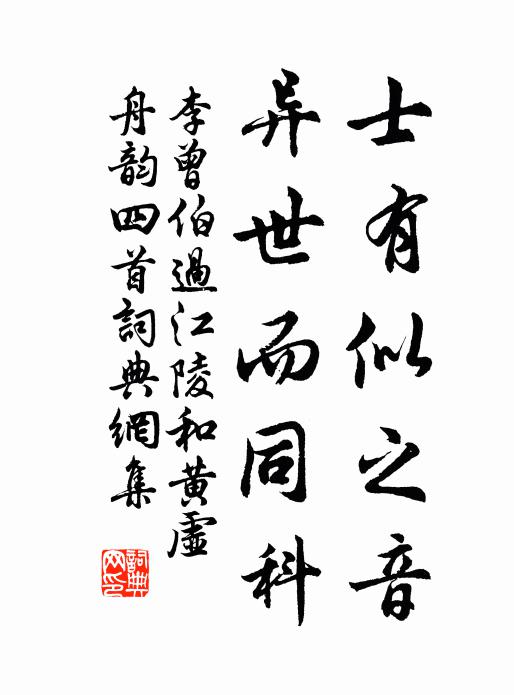 士有似之音
异世而同科
李曾伯過江陵和黄虛
舟韵四首詞典網集
詞典网印